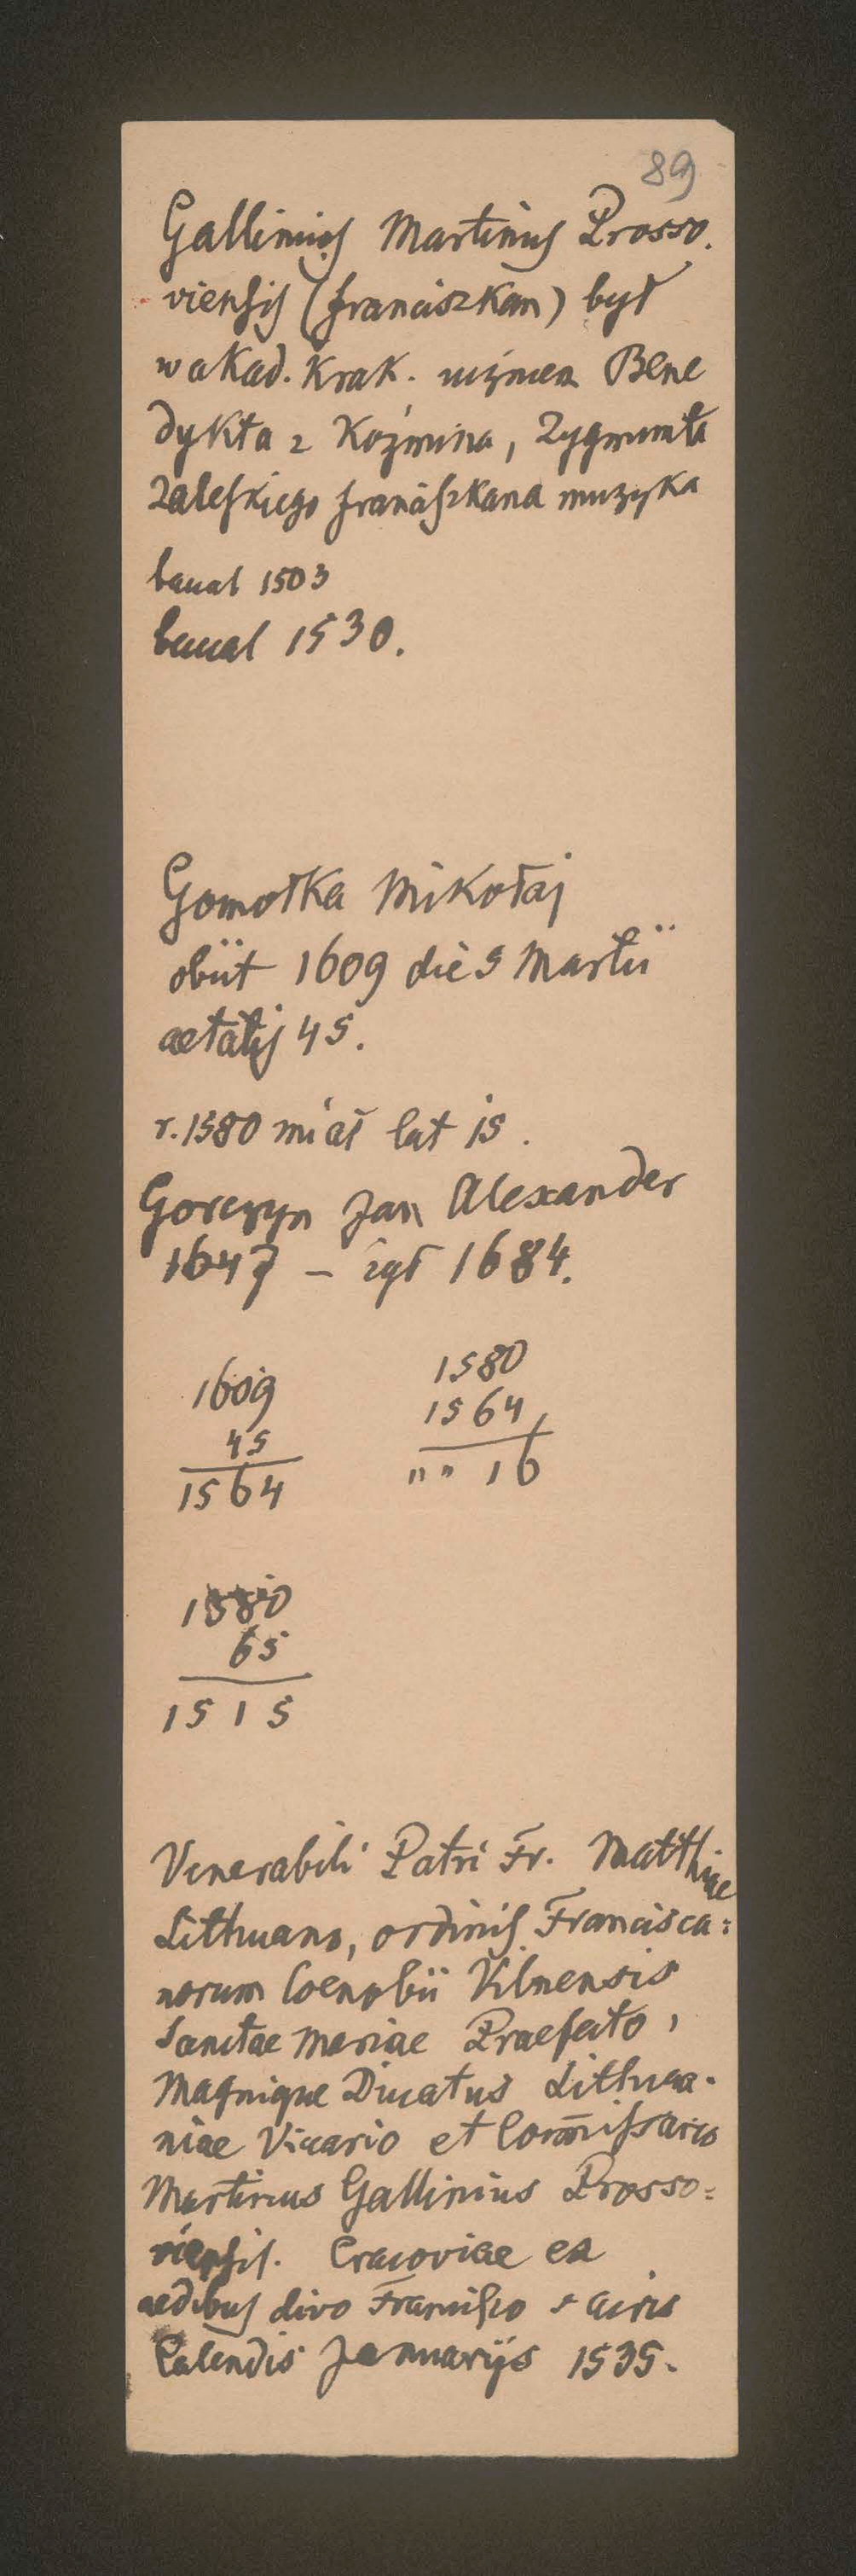 89
Gallinius Martinus Prosso.
viensis (franciszkan) był
w akad. Krak. uczniem Bene
dykta z Koźmina, Zygmunta
Zaleskiego franciszkana muzyka
1503
1530.
Gomołka Mikołaj
obiit 1609 die 5 Martii
aetatis 45.
r. 1580 miał lat 15.
Gorczyn Jan Alexander
1647 – żył 1684.
1609
45
1564
1580
1564
"" 16
1580
65
1515
Venerabili Patri Fr. Matthiae
Lithuano, ordinis Francisca=
norum Coenobii Vilnensis
Sanctae Mariae Praefecto,
Magnique Ducatus Lithua-
niae Vicario et Com̄issario
Martinus Gallinius Prosso=
viensis. Cracoviae ex
aedibus divo Francisco sacris
Calendis Januarijs 1535.